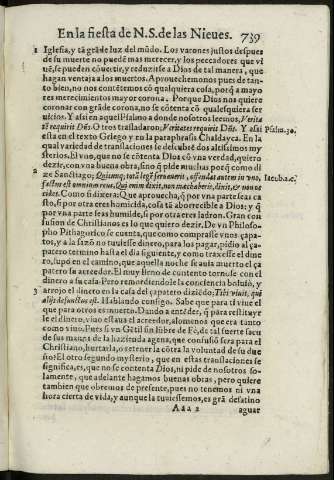 En la fiesta de N.S. de las Nieues. 739
1 Iglesia, y tã grãde luz del mũdo. Los varones justos despues
de su muerte no puedẽ mas merecer, y los peccadores que vi
uẽ, se pueden cõuertir, y reduzirse a Dios de tal manera, que
hagan ventaja a los muertos. Aprouechemonos pues de tan-
to bien, no nos contẽtemos cõ qualquiera cosa, porq̃ a mayo
res merecimientos mayor corona. Porque Dios nos quiere
coronar con grãde corona, no se cõtenta cõ qualesquiera ser
uicios. Y assi en aquel Psalmo a donde nosotros leemos, Verita
tẽ requiris Dñs. Otros trasladaron; Veritates requiris Dñs. Y assi
Psalm. 30.
esta en el texto Griego y en la paraphrasis Chaldayca. En la
qual variedad de translaciones se descubrẽ dos altissimos my
sterios. El vno, que no se cõtenta Dios cõ vna verdad, quiero
dezir, con vna buena obra, sino q̃ pide muchas porq̃ como di
2 ze Sanctiago; Quicunq; totã legẽ seruauerit, offendat autem in vno,
Iacub. 2. c.
factus est omnium reus. Qui enim dixit, non mœchaberis, dixit, & non oc
cides. Como si dixera: Que aprouecha, q̃ por vna parte seas ca
sto, si por otra eres homicida, cosa tã aborrecible a Dios: y q̃
por vna parte seas humilde, si por otra eres ladron. Gran con
fusion de Christianos es lo que quiero dezir. De vn Philoso-
pho Pithagorico se cuenta, que como comprasse vnos çapa-
tos, y a la sazõ no tuuiesse dinero, para los pagar, pidio al ça-
patero termino hasta el dia siguiente, y como traxesse el dine
ro, supo en el camino, que aquella noche se auia muerto el ça
patero su acreedor. El muy lleno de contento tornose con el
dinero a su casa. Pero remordiendole la conciencia boluio, y
arrojo el dinero en la casa del çapatero diziẽdo; Tibi viuit, qui
3 alijs defunctus est. Hablando consigo. Sabe que para ti viue el
que para otros es muerto. Dando a entẽder, q̃ para restituyr
le el dinero, viuo estaua el acreedor, alomenos que era tanto
como viuo. Pues si vn Gẽtil sin libre de Fè, de tal suerte sacu
de sus manos de la hazienda agena, que confusiõ sera para el
Christiano, hurtarla, o retener la cõtra la voluntad de su due
ño? El otro segundo mysterio, que en estas translaciones se
significa, es, que no se contenta Dios, ni pide de nosotros so-
lamente, que adelante hagamos buenas obras, pero quiere
tambien que obremos de presente, pues no tenemos ni vna
hora cierta de vida, y aunque la tuuiessemos, es grã desatino
Aaa 2 aguar